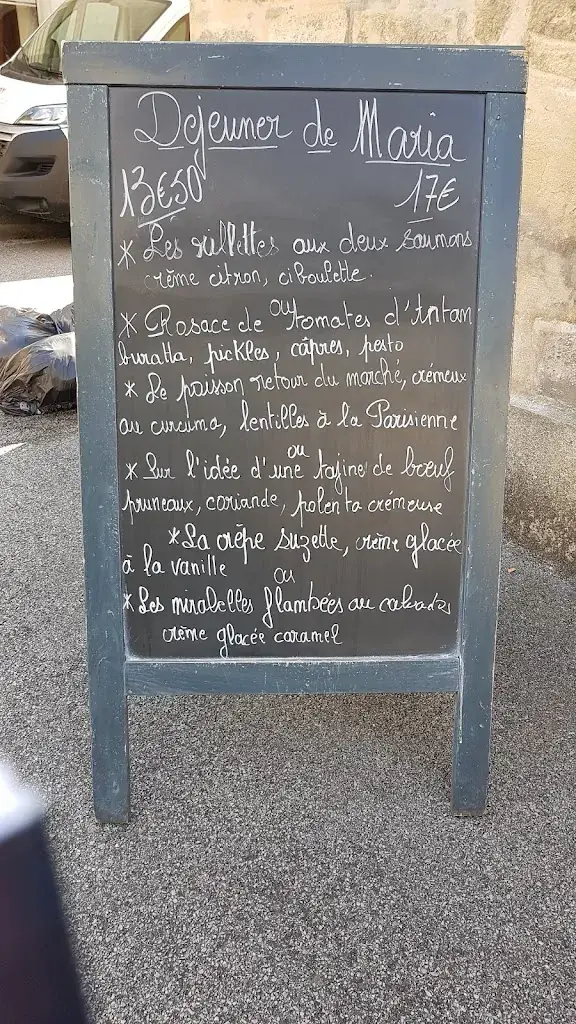 Dejeuner de Maria
13€50 17€
* Les rillettes aux deux saumons
crème citron, ciboulette.
ou
* Rosace de tomates d'Antan
buratta, pickles, câpres, pesto
* Le poisson retour du marché, crémeux
au curcuma, lentilles à la Parisienne
ou
* Sur l'idée d'une tajine de bœuf
pruneaux, coriande, polenta crémeuse
*La crêpe suzette, crème glacée
à la vanille
ou
*Les mirabelles flambées au calvados
crème glacée caramel